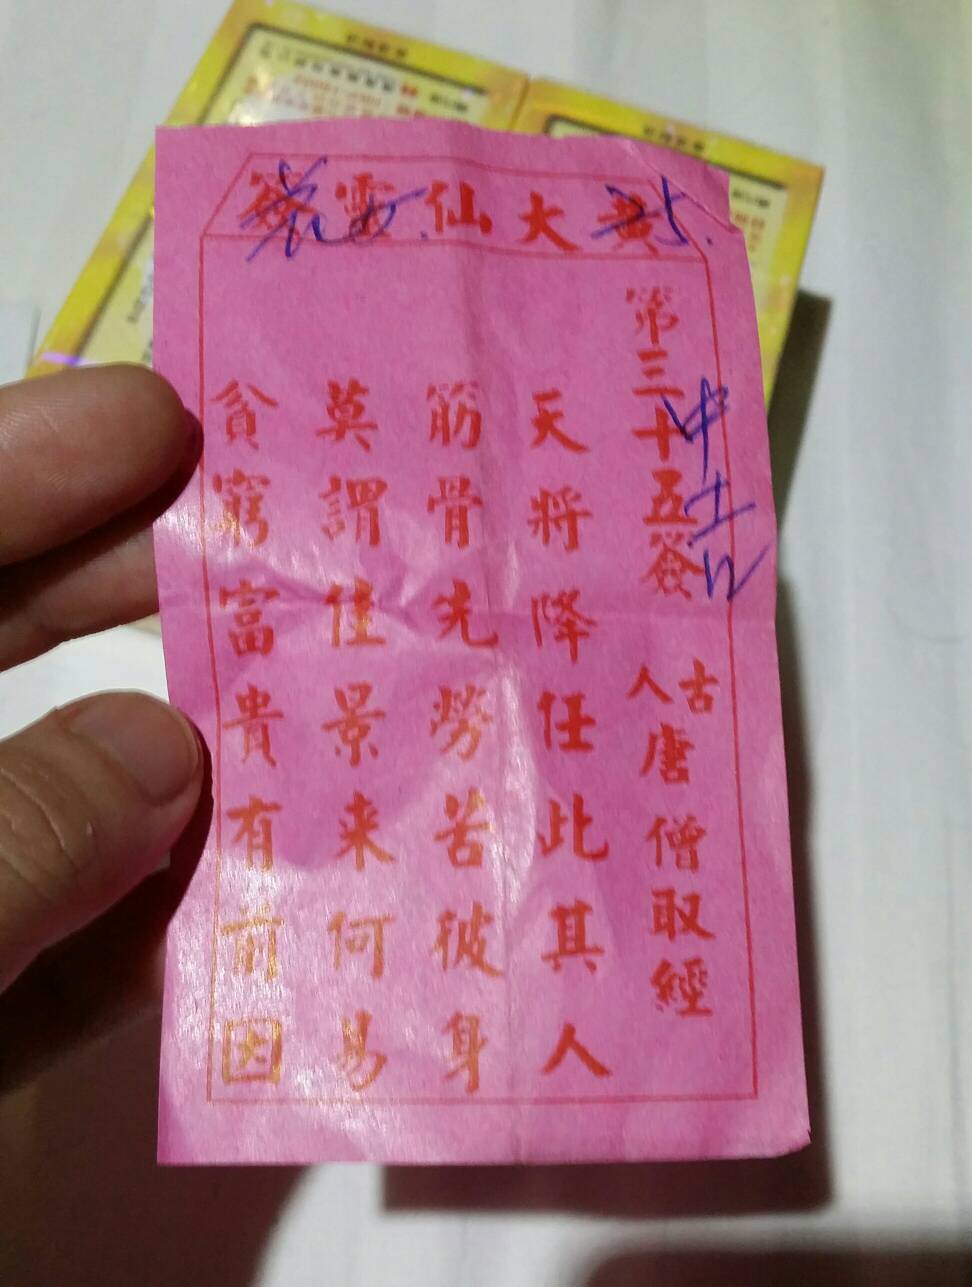 黃大仙靈簽
第三十五簽
古人 唐僧取經
天將降任此其人
筋骨先勞苦彼身
莫謂佳景来何易
貧窮富貴有前因
35.
中吉